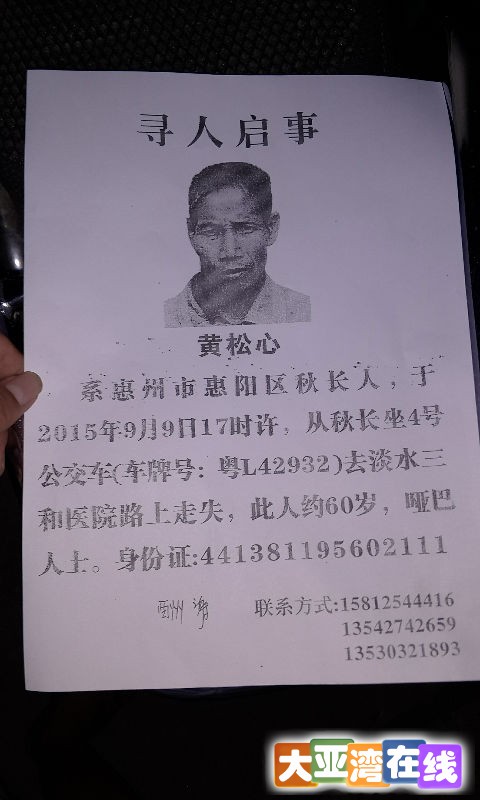 寻人启事
黄松心
系惠州市惠阳区秋长人，于
2015年9月9日17时许，从秋长坐4号
公交车(车牌号：粤L42932)去淡水三
和医院路上走失，此人约60岁，哑巴
人士。身份证:441381195602111
联系方式:15812544416
13542742659
13530321893
大亚湾在线